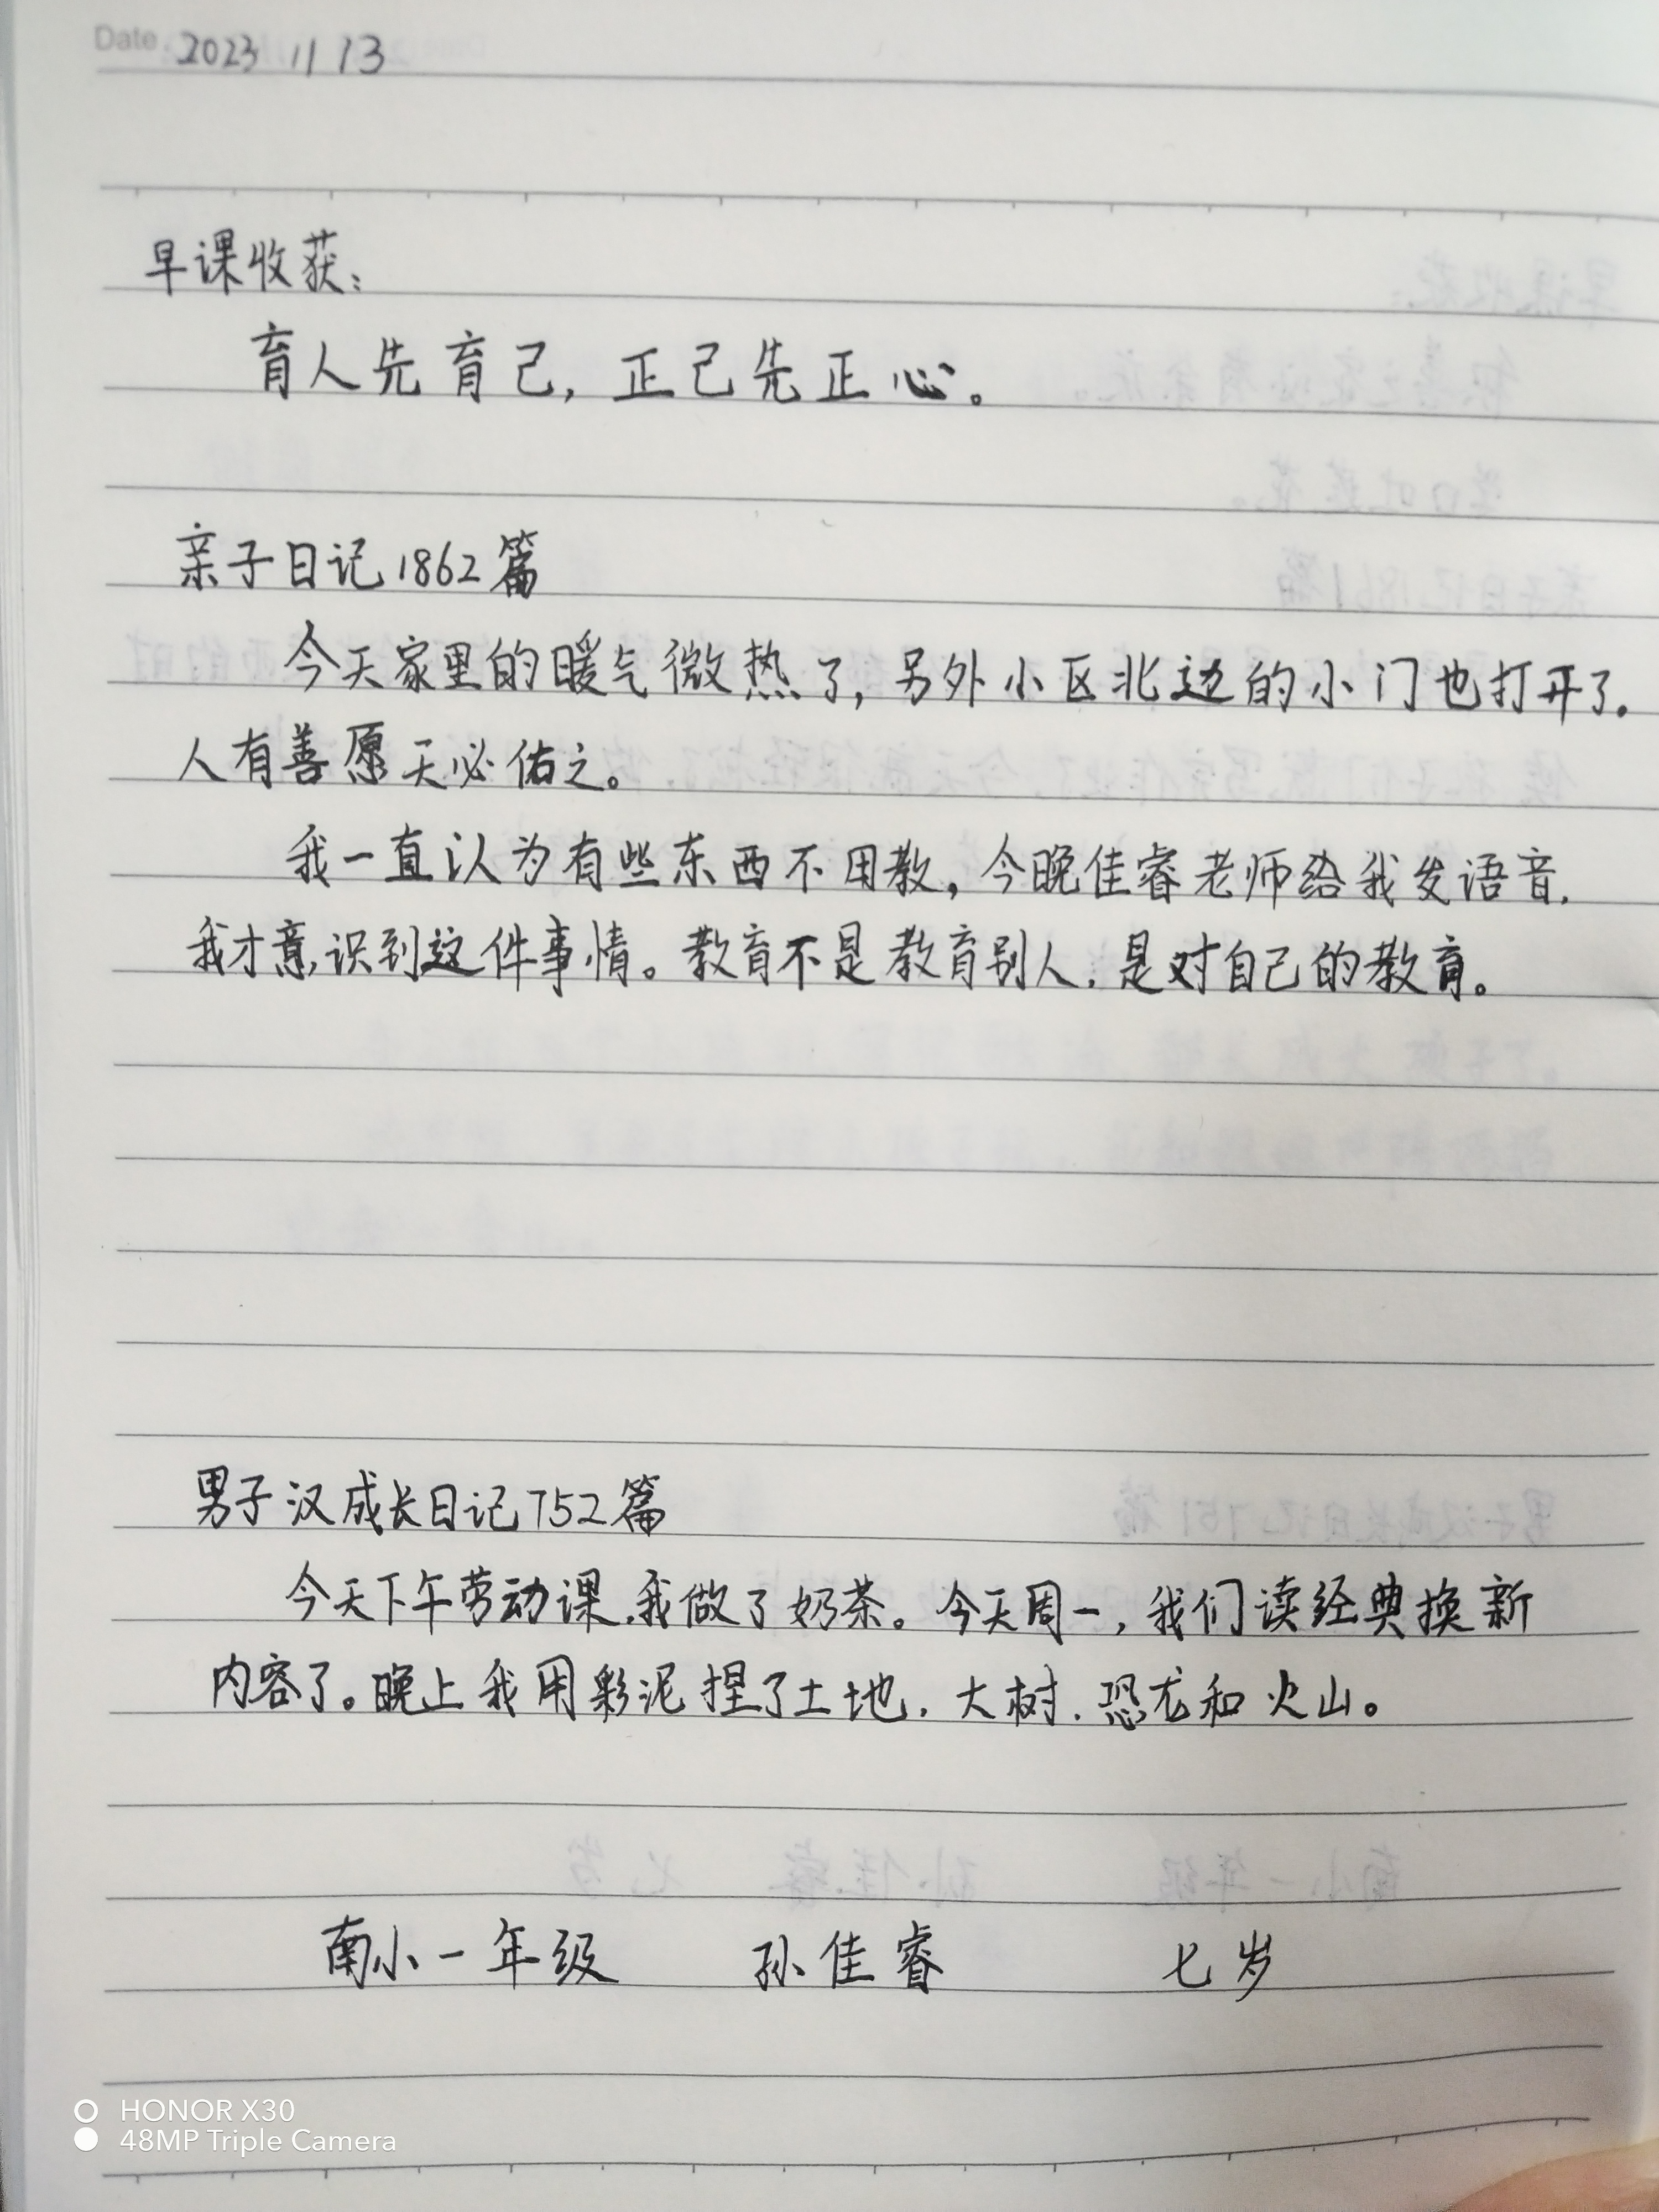 Date 2023 11 13
早课收获：
育人先育己，正己先正心。
亲子日记1862篇
今天家里的暖气微热了，另外小区北边的小门也打开了。
人有善愿天必佑之。
我一直认为有些东西不用教，今晚佳睿老师给我发语音，
我才意识到这件事情。教育不是教育别人，是对自己的教育。
男子汉成长日记752篇
今天下午劳动课，我做了奶茶。今天周一，我们读经典换新
内容了。晚上我用彩泥捏了土地，大树，恐龙和火山。
南小一年级 孙佳睿 七岁
HONOR X30
48MP Triple Camera